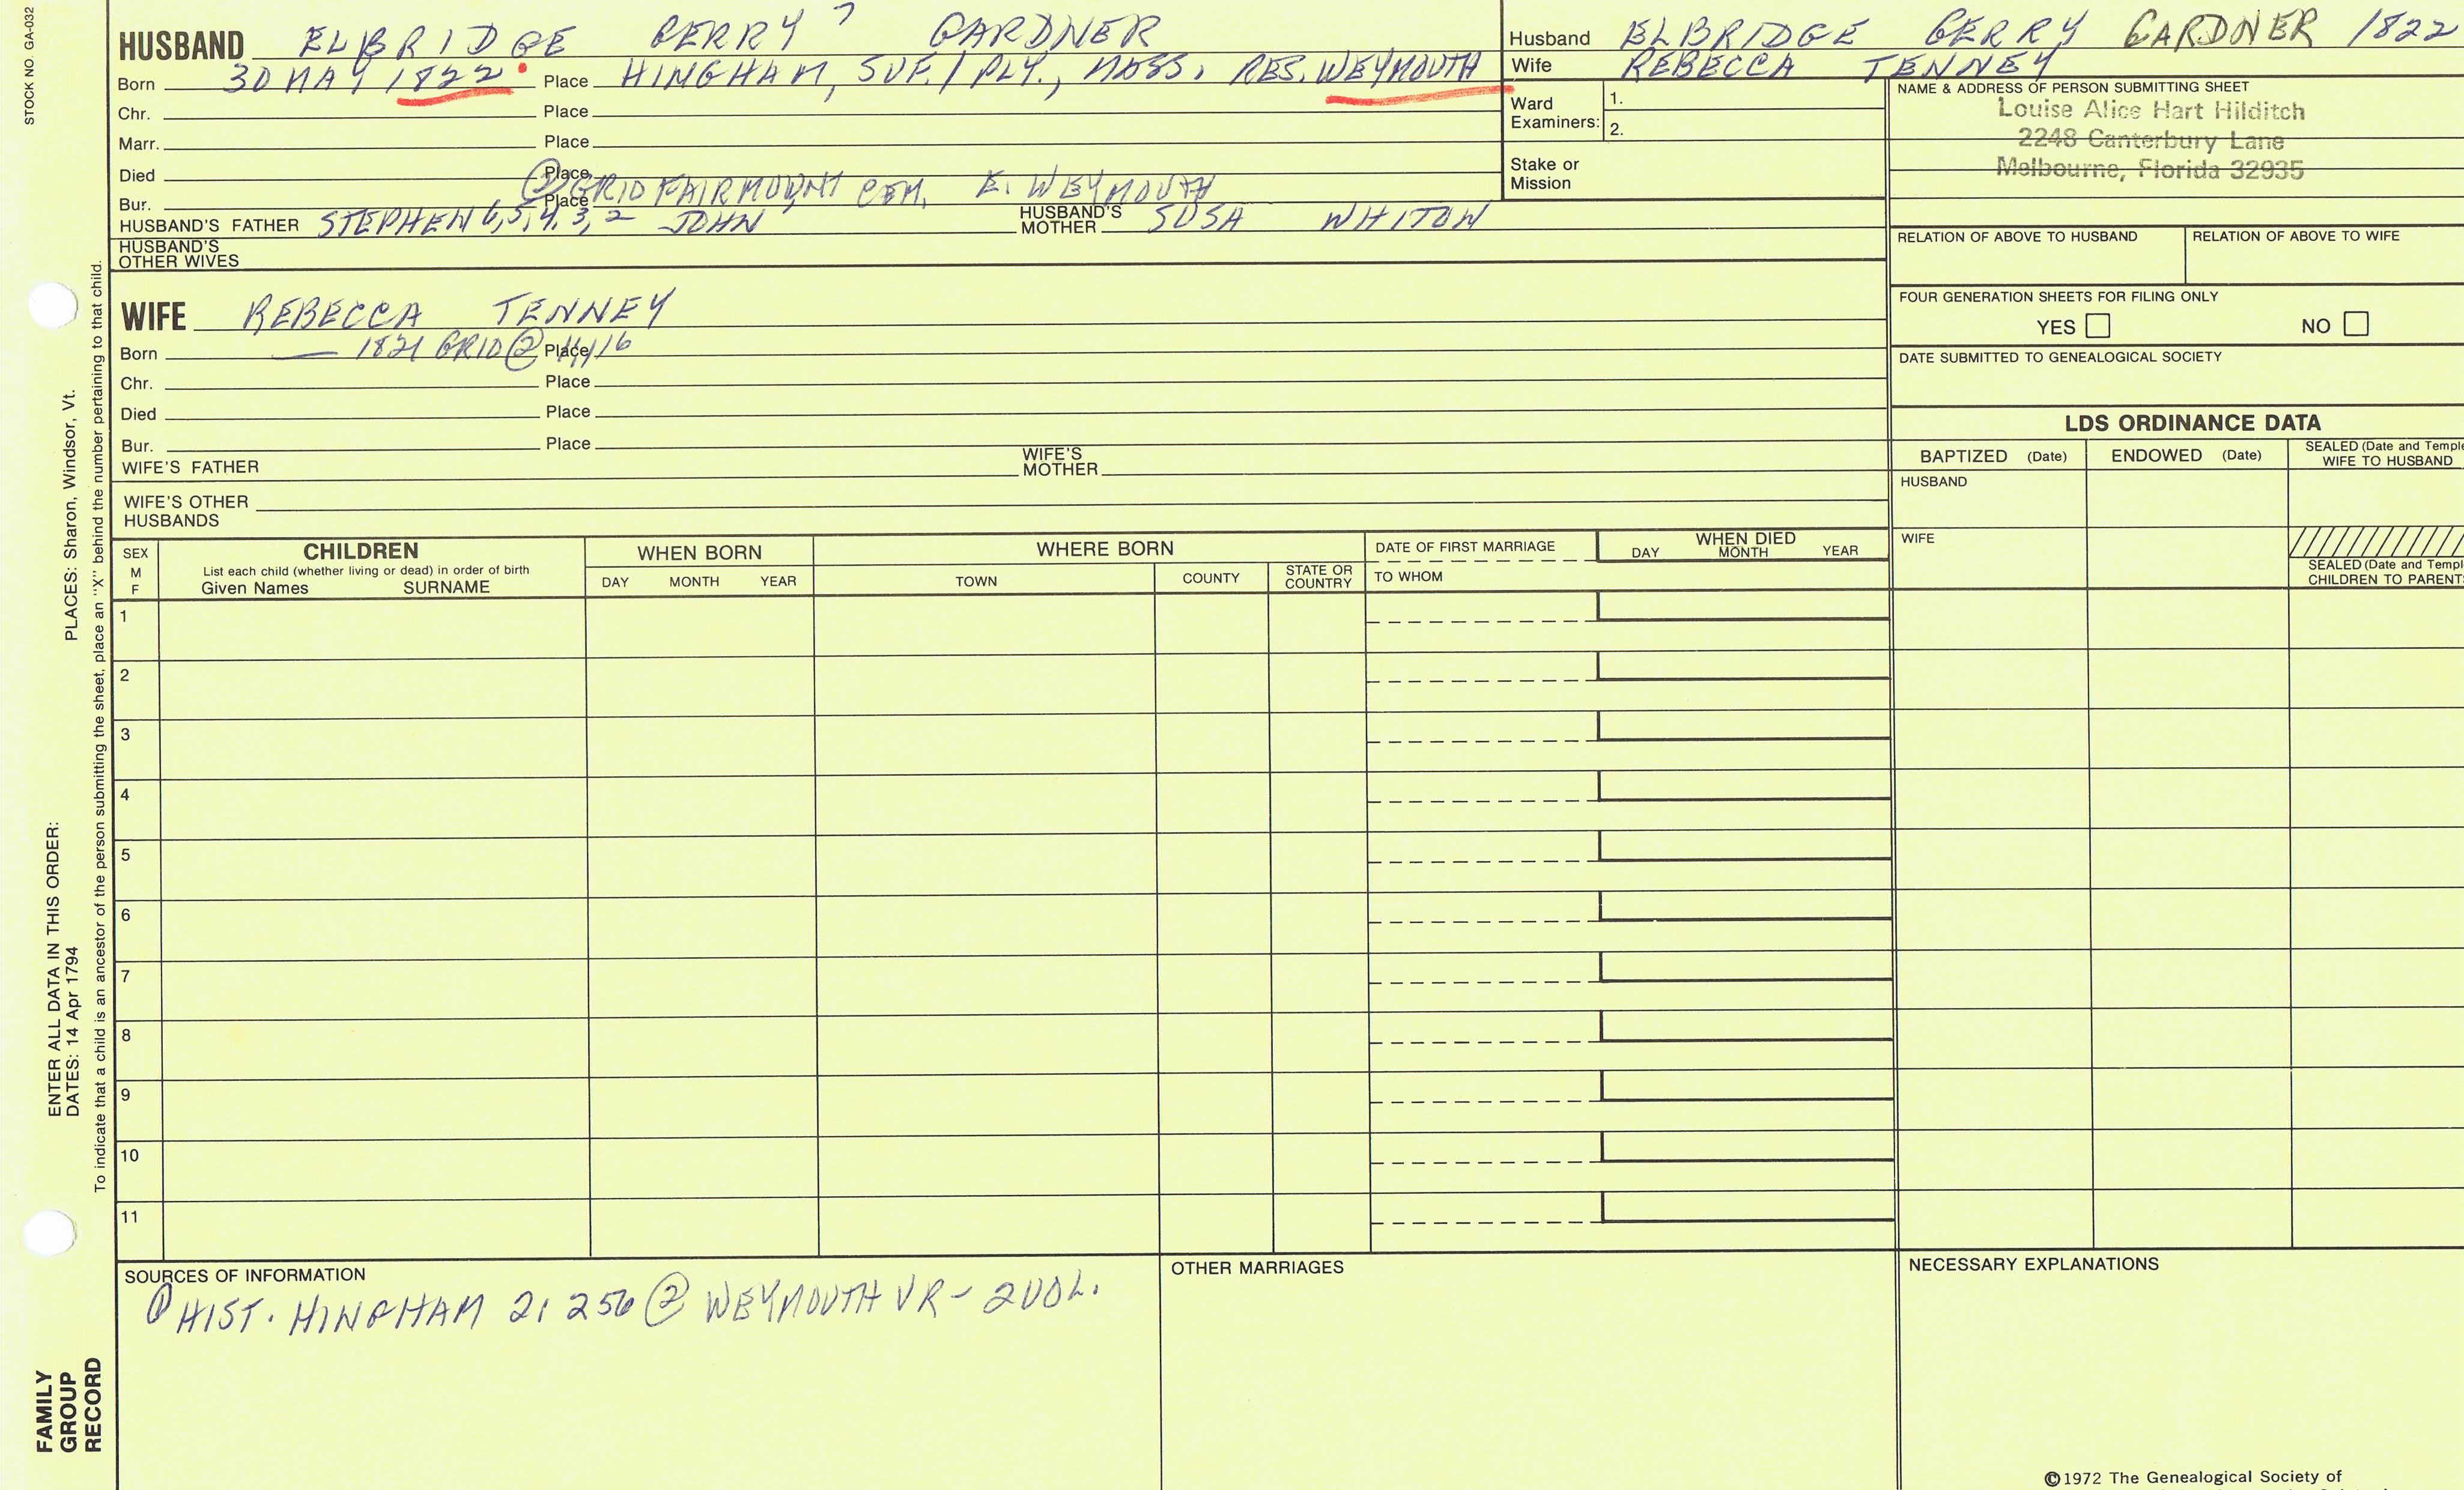 STOCK NO. GA-032
HUSBAND ELBRIDGE GERRY 7 GARDNER
Born 30 MAY 1822 Place HINGHAM, SUF./PLY., MASS. RES. WEYMOUTH
Chr. Place
Marr. Place
Died Place
Bur. Place ② GRID FAIRMOUNT CEM, E. WEYMOUTH
HUSBAND'S FATHER STEPHEN 6, 5, 4, 3, 2 JOHN HUSBAND'S MOTHER SUSA WHITON
HUSBAND'S OTHER WIVES
Husband ELBRIDGE GERRY GARDNER 1822
Wife REBECCA TENNEY
Ward Examiners: 1.
2.
Stake or Mission
NAME & ADDRESS OF PERSON SUBMITTING SHEET
Louise Alice Hart Hilditch
2248 Canterbury Lane
Melbourne, Florida 32935
RELATION OF ABOVE TO HUSBAND RELATION OF ABOVE TO WIFE
FOUR GENERATION SHEETS FOR FILING ONLY
YES NO
DATE SUBMITTED TO GENEALOGICAL SOCIETY
WIFE REBECCA TENNEY
Born — 1821 GRID ② Place
Chr. Place
Died Place
Bur. Place
WIFE'S FATHER WIFE'S MOTHER
WIFE'S OTHER HUSBANDS
LDS ORDINANCE DATA
BAPTIZED (Date) ENDOWED (Date) SEALED (Date and Temple
WIFE TO HUSBAND
HUSBAND
WIFE
SEALED (Date and Templ
CHILDREN TO PARENTS
SEX M F
CHILDREN
List each child (whether living or dead) in order of birth
Given Names SURNAME
WHEN BORN
DAY MONTH YEAR
WHERE BORN
TOWN COUNTY STATE OR COUNTRY
DATE OF FIRST MARRIAGE
TO WHOM
WHEN DIED
DAY MONTH YEAR
1
2
3
4
5
6
7
8
9
10
11
SOURCES OF INFORMATION
① HIST. HINGHAM 2: 256 ② WEYMOUTH VR - 2 VOL.
OTHER MARRIAGES
NECESSARY EXPLANATIONS
©1972 The Genealogical Society of
PLACES: Sharon, Windsor, Vt.
ENTER ALL DATA IN THIS ORDER:
DATES: 14 Apr 1794
To indicate that a child is an ancestor of the person submitting the sheet, place an "X" behind the number pertaining to that child.
FAMILY
GROUP
RECORD